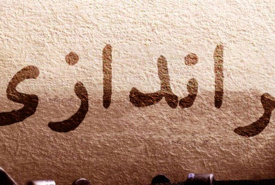 راندازی